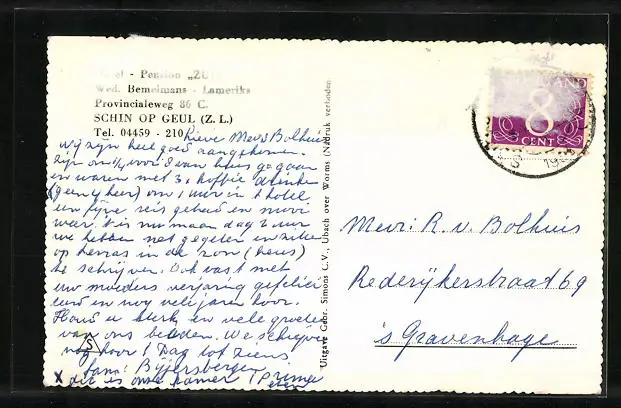 Hotel - Pension „ZU
Wed. Bemelmans - Lameriks
Provincialeweg 86 C.
SCHIN OP GEUL (Z. L.)
Tel. 04459 - 210
Lieve Mevr Bolhuis
Wij zijn heel goed aangekomen.
Zijn om ½ voor 8 van huis gegaan
en waren met 3 x koffie drinken
(geen bier) om 1 uur in 't hotel
een fijne reis gehad en mooi
weer. 't is nu maandag 2 uur
we hebben net gegeten en zitten
op terras in de zon (heus)
te schrijven. Ook vast met
uw moeders verjaring gefelici
teerd en nog vele jaren hoor.
Houd u sterk en vele groeten
van ons beiden. We schrijven
nog hoor! Dag tot ziens
fam: Bijersbergen
X dit is onze kamer 1 prima
eten
Uitgave Gebr. Simons C.V., Ubach over Worms (Nadruk verboden
NEDERLAND
8
CENT
Mevr: R. v. Bolhuis
Rederijkerstraat 69
's Gravenhage